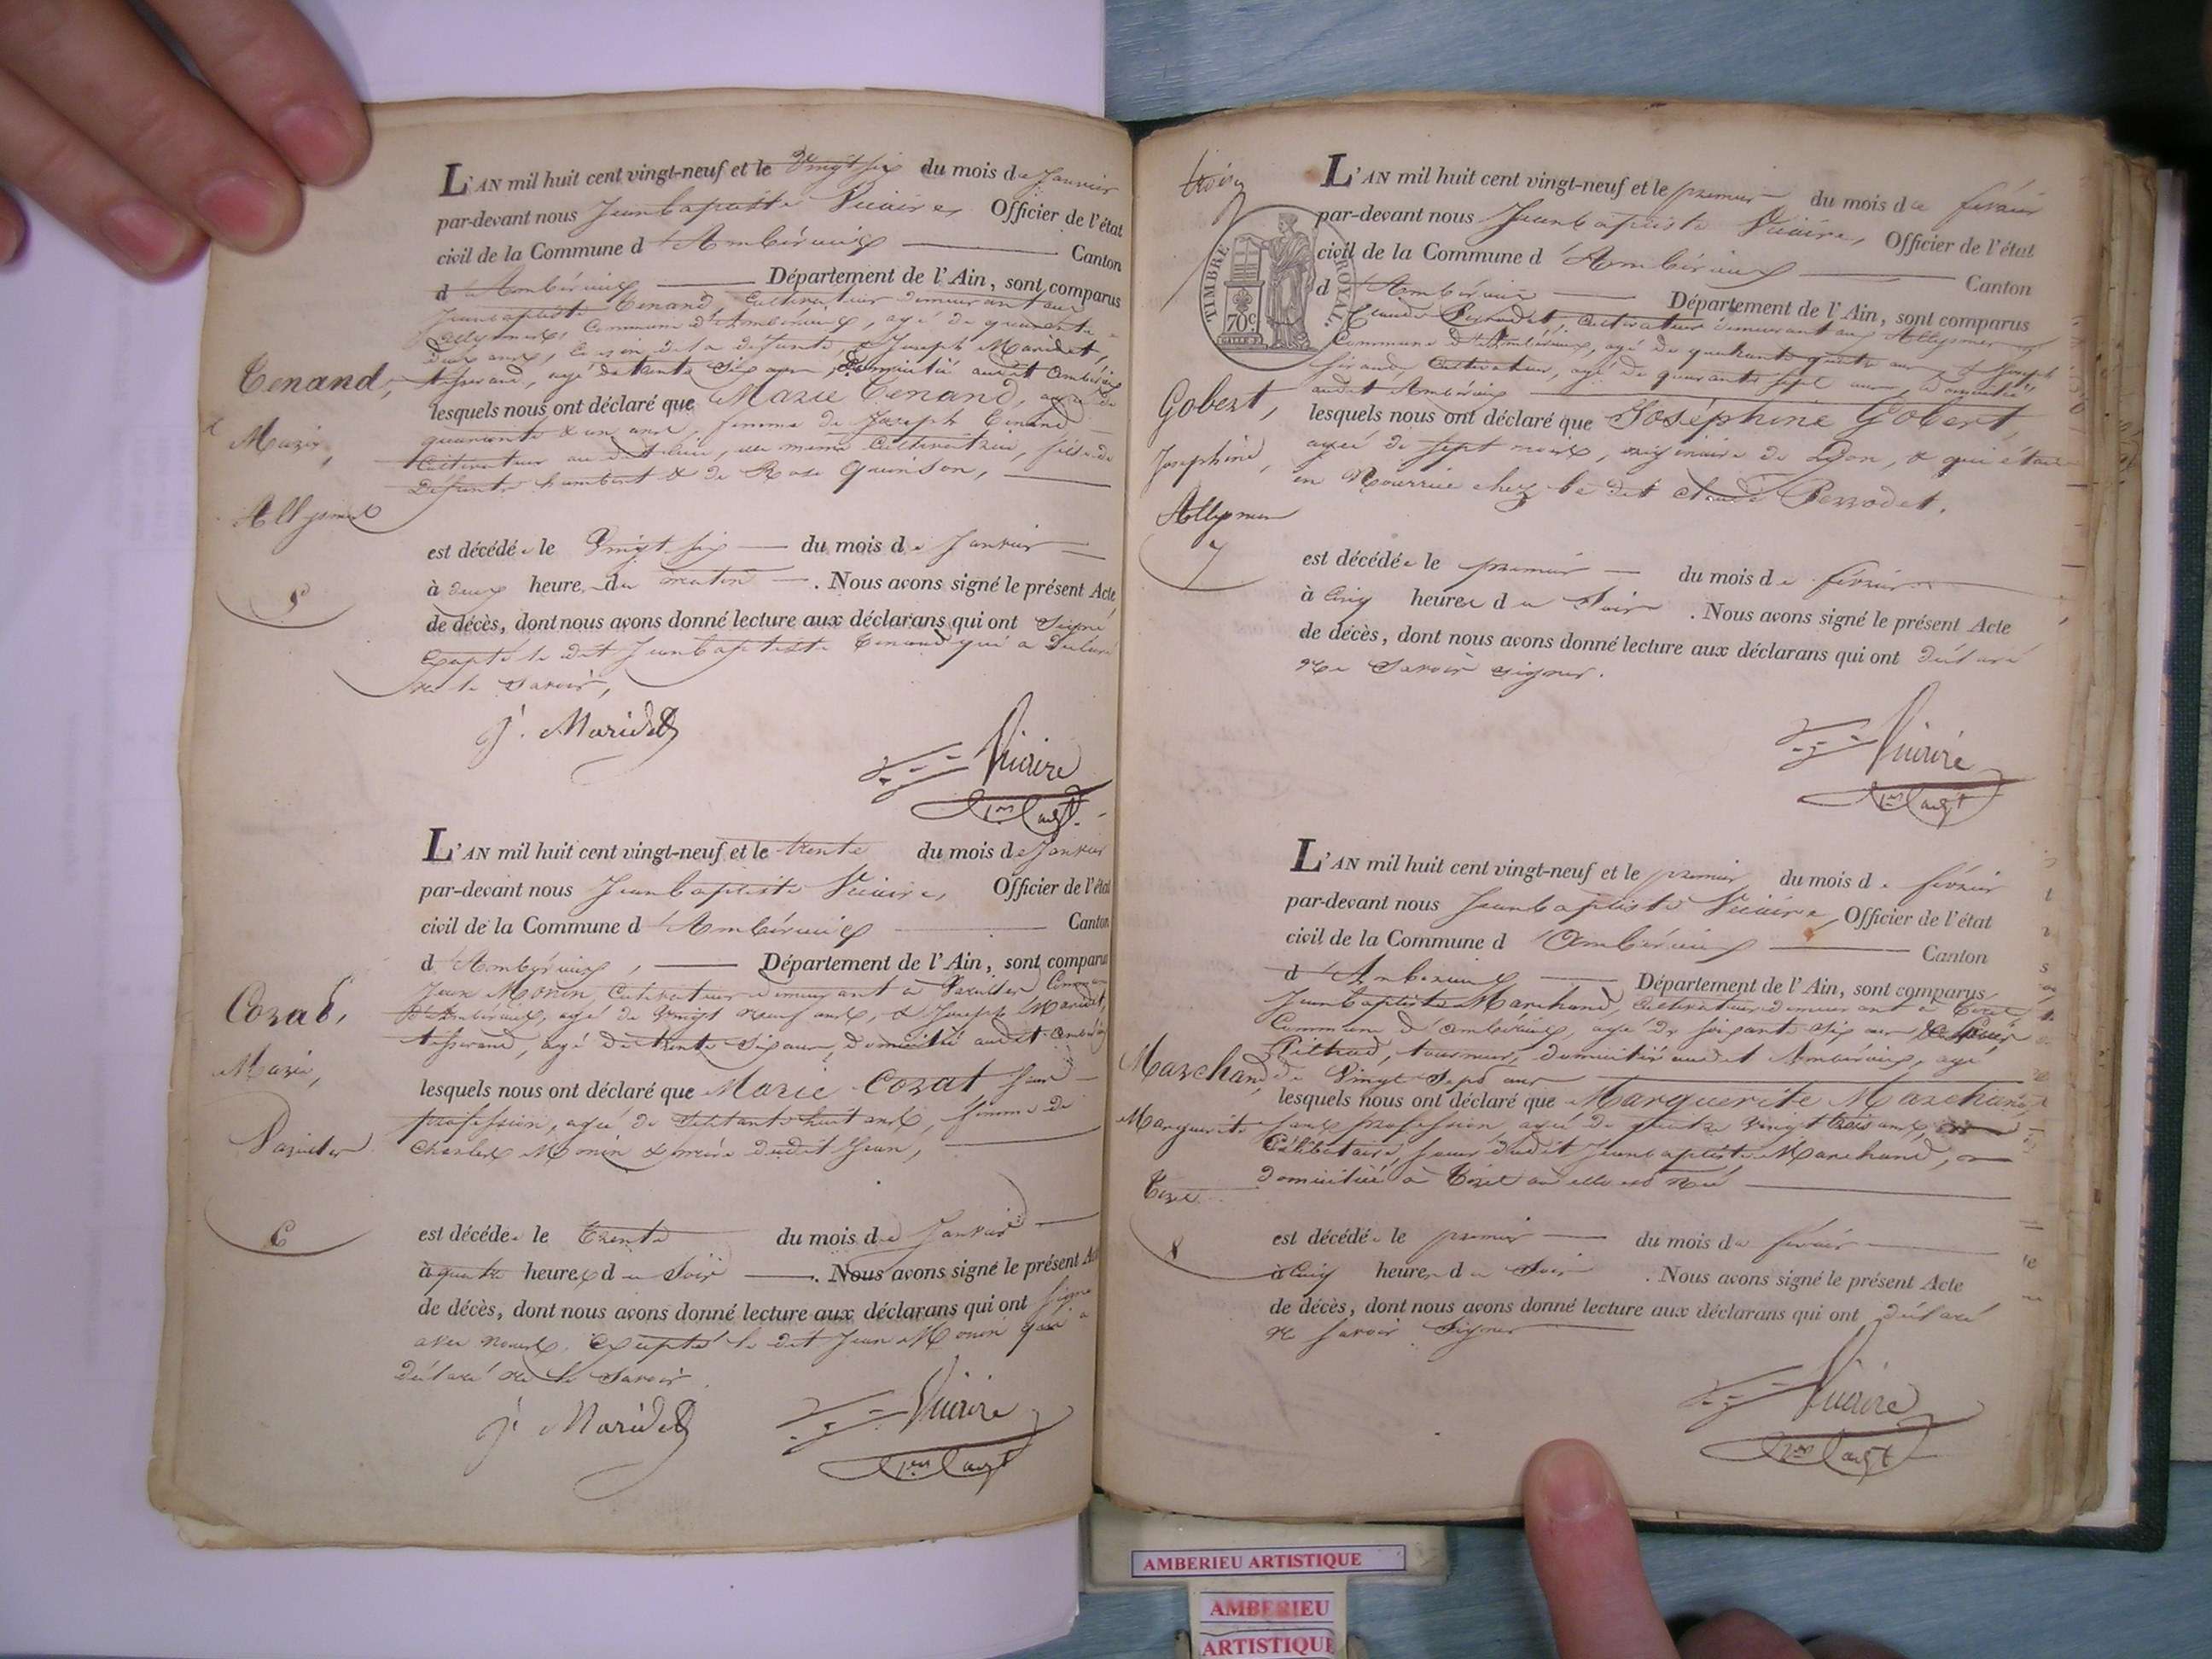 L'AN mil huit cent vingt-neuf et le Vingt six du mois de Janvier
par-devant nous Jean baptiste Vicaire, Officier de l'état
civil de la Commune d'Ambérieux Canton
d'Ambérieux Département de l'Ain, sont comparus
Jean baptiste Tenand, Cultivateur demeurant aux
Allymes, Commune d'Ambérieux, agé de quarante
deux ans, de la defunte, & Joseph Maridet,
Tenand,
tisserand, agé de trente six ans, domicilié audit Ambérieux
lesquels nous ont déclaré que Marie Tenand, agée de
Marie,
quarante & un ans, femme de Joseph Tenand
Cultivateur audit lieu, elle même Cultivatrice, fille de
Defunt humbert & de Rose Quinson,
Allymes
est décédée le Vingt six du mois de Janvier
à deux heure du matin . Nous avons signé le présent Acte
5
de décès, dont nous avons donné lecture aux déclarans qui ont Signé
Excepté le dit Jean baptiste Tenand qui a Déclaré
ne le Savoir,
J. Maridet
Vicaire
L'AN mil huit cent vingt-neuf et le trente du mois de Janvier
par-devant nous Jean baptiste Vicaire, Officier de l'état
civil de la Commune d'Ambérieux Canton
d'Ambérieux, Département de l'Ain, sont comparus
Jean Monin, Cultivateur demeurant à Vareilles Commune
Cozat,
D'Ambérieux, agé de Vingt Neuf ans, & Joseph Maridet,
tisserand, agé de trente Six ans, domicilié audit Ambérieux
Marie,
lesquels nous ont déclaré que Marie Cozat Sans
profession, agée de Septante huit ans, femme de
Vareilles
Charles Monin & mère dudit Jean,
est décédée le Trente du mois de Janvier
6
à quatre heures du Soir . Nous avons signé le présent Acte
de décès, dont nous avons donné lecture aux déclarans qui ont Signé
avec nous, Excepté le dit Jean Monin qui a
Déclaré ne le Savoir.
J. Maridet
Vicaire
L'AN mil huit cent vingt-neuf et le premier du mois de février
par-devant nous Jean baptiste Vicaire, Officier de l'état
TIMBRE ROYAL.
70c
civil de la Commune d'Ambérieux Canton
d'Ambérieux Département de l'Ain, sont comparus
Claude Perrodet, Cultivateur demeurant aux Allymes
Commune d'Ambérieux, agé de quarante quatre ans, & Joseph
Cultivateur, agé de quarante sept ans, domicilié
audit Ambérieux
Gobert,
lesquels nous ont déclaré que Joséphine Gobert,
Josephine,
agée de sept mois, originaire de Lyon, & qui était
en Nourrice chez le dit Claude Perrodet.
Allymes
7
est décédée le premier du mois de février
à Cinq heures du Soir . Nous avons signé le présent Acte
de décès, dont nous avons donné lecture aux déclarans qui ont déclaré
ne Savoir signer.
Vicaire
L'AN mil huit cent vingt-neuf et le premier du mois de février
par-devant nous Jean baptiste Vicaire, Officier de l'état
civil de la Commune d'Ambérieux Canton
d'Ambérieux Département de l'Ain, sont comparus
Jean baptiste Marchand, Cultivateur demeurant à Tiret
Commune d'Ambérieux, agé de soixante Six ans
tourneur, domicilié audit Ambérieux, agé
Marchand,
de Vingt Sept ans
lesquels nous ont déclaré que Marguerite Marchand,
Marguerite
sans profession, agée de quatre Vingt trois ans,
Célibataire, sœur dudit Jean baptiste Marchand,
domiciliée à Tiret où elle est née
Tiret
8
est décédée le premier du mois de février
à Cinq heures du Soir . Nous avons signé le présent Acte
de décès, dont nous avons donné lecture aux déclarans qui ont déclaré
ne savoir Signer
Vicaire
AMBERIEU ARTISTIQUE
AMBERIEU
ARTISTIQUE